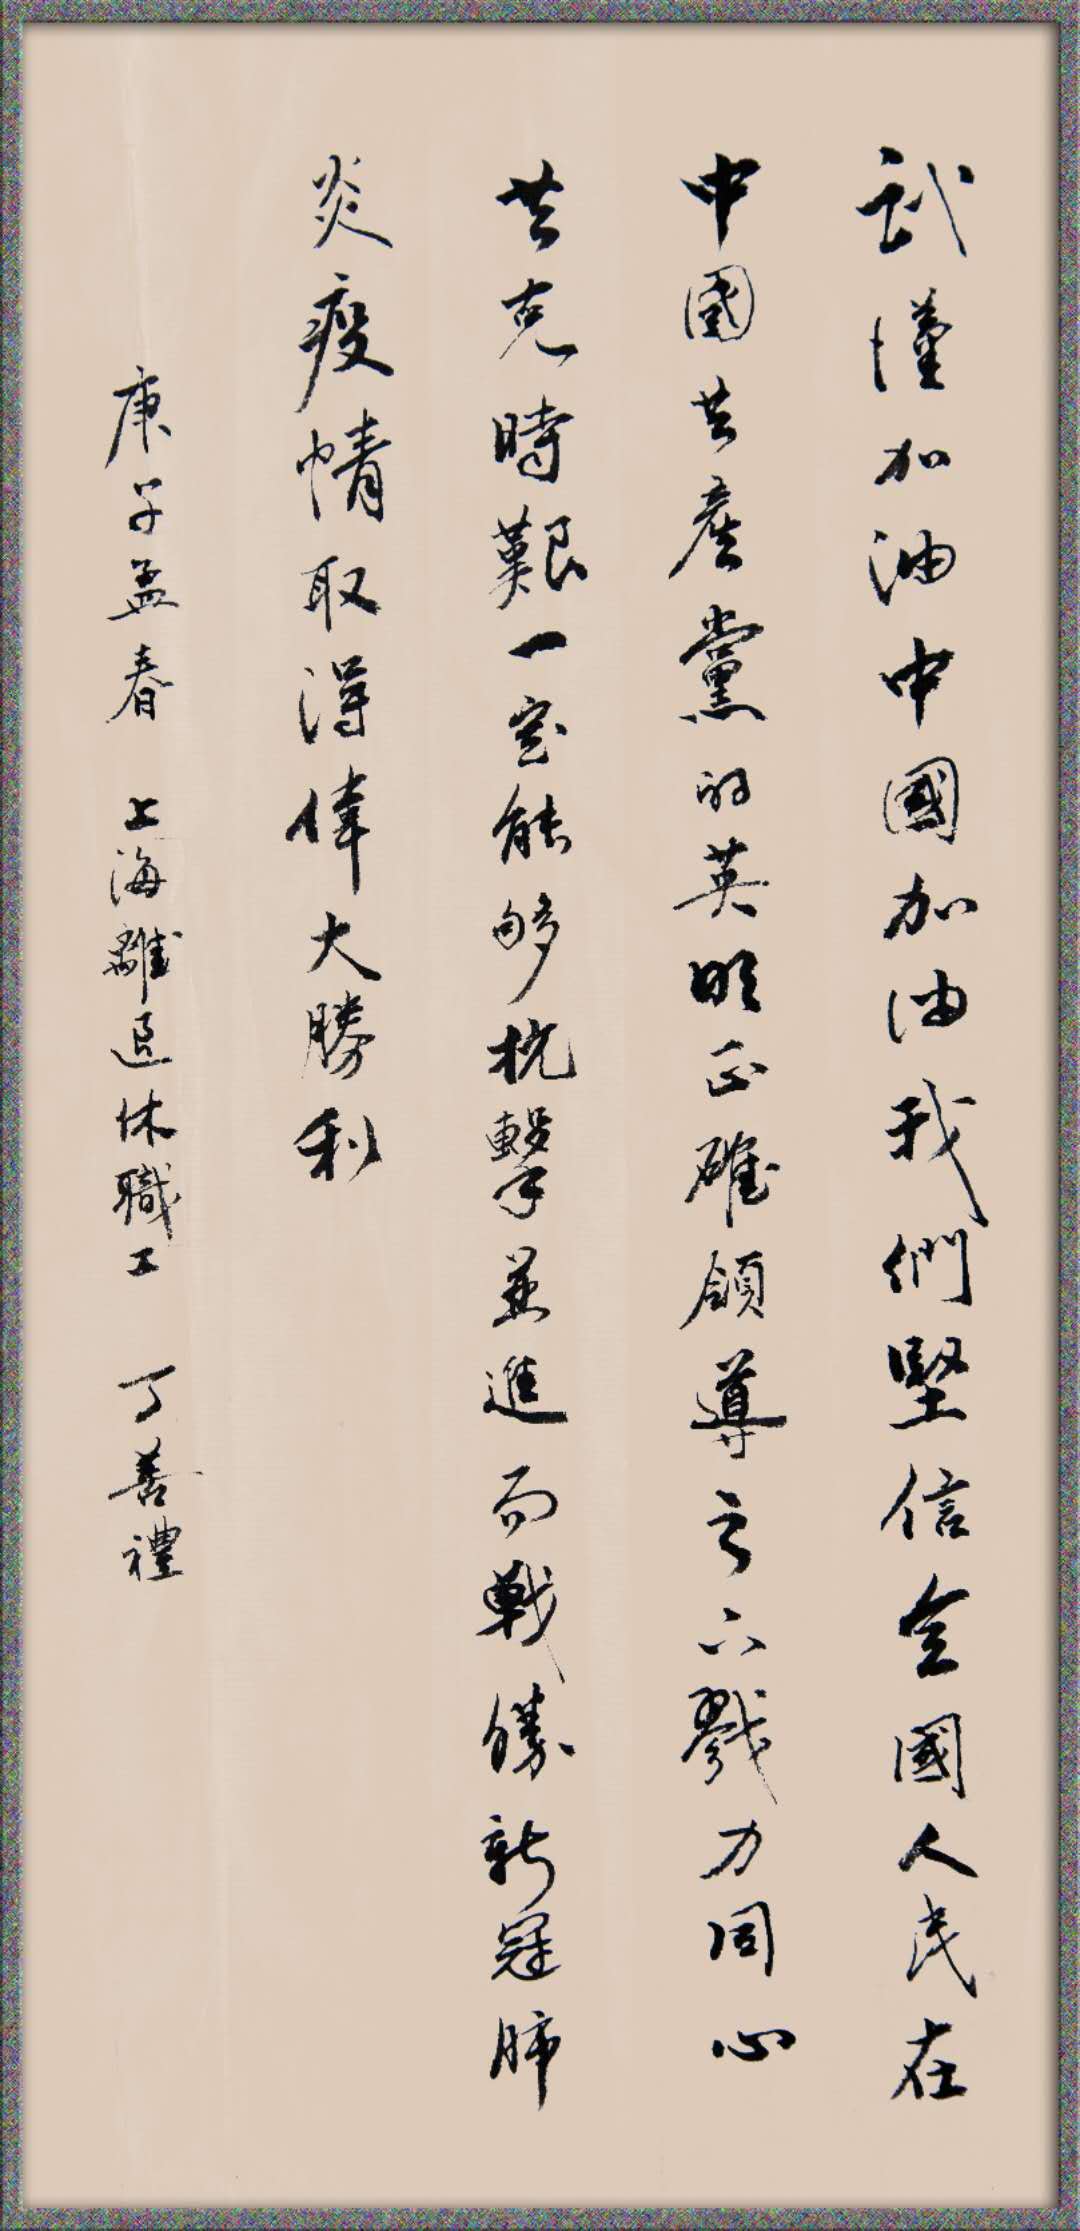 武漢加油中國加油我們堅信全國人民在
中國共產黨的英明正確領導之下戮力同心
共克時艱一定能够抗擊並進而戰勝新冠肺
炎疫情取得偉大勝利
庚子孟春 上海離退休職工 丁善禮